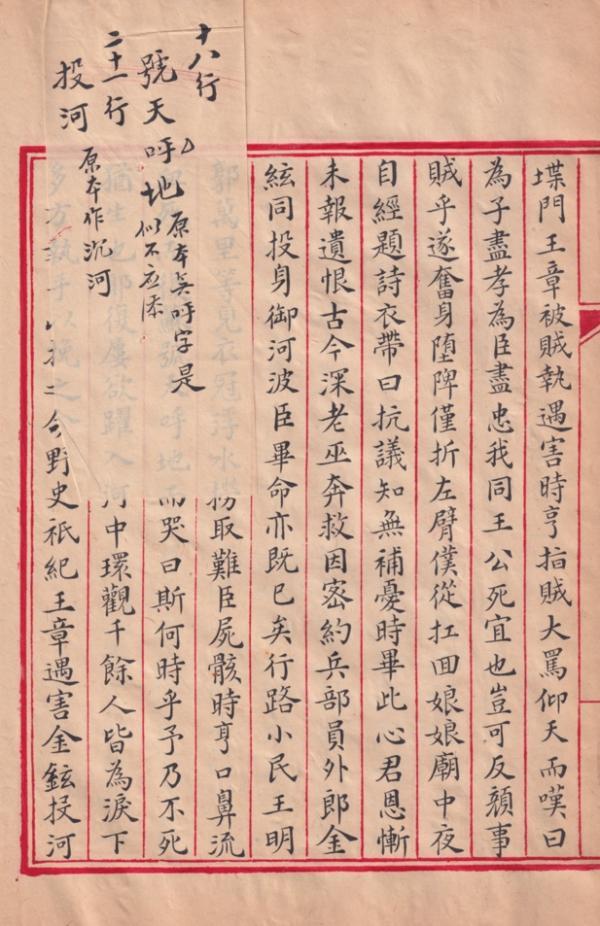 十八行
號天呼地 原本無呼字是
似不应添
二十一行
投河 原本作沉河
堞門王章被賊執遇害時亨指賊大罵仰天而嘆曰
為子盡孝為臣盡忠我同王公死宜也豈可反顏事
賊乎遂奮身墮陴僅折左臂僕從扛回娘娘廟中夜
自經題詩衣帶曰抗議知無補憂時畢此心君恩慚
未報遺恨古今深老巫奔救因密約兵部員外郎金
鉉同投身御河波臣畢命亦既已矣行路小民王明
郭萬里等見衣冠浮水撈取難臣屍骸時亨口鼻流
號天呼地而哭曰斯何時乎予乃不死
猶生也耶復屢欲躍入河中環觀千餘人皆為淚下
多方執手以挽之今野史祇紀王章遇害金鉉投河